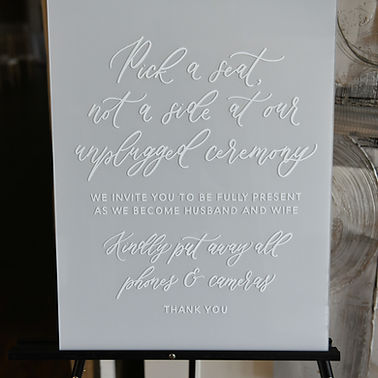 Pick a seat,
not a side at our
unplugged ceremony
WE INVITE YOU TO BE FULLY PRESENT
AS WE BECOME HUSBAND AND WIFE
Kindly put away all
phones & cameras
THANK YOU